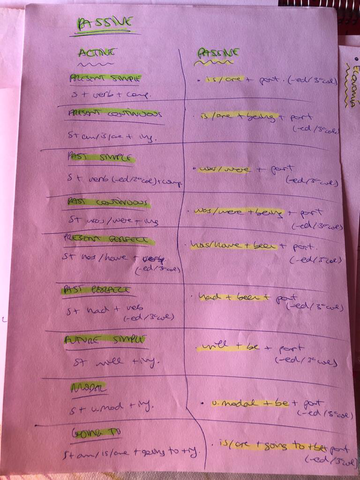 PASSIVE
ACTIVE
PASSIVE
PRESENT SIMPLE
S + verb + comp.
• is/are + part. (-ed/3ªcol)
PRESENT CONTINUOUS
S + am/is/are + ing.
is/are + being + part
(-ed/3ªcol)
PAST SIMPLE
S + verb(-ed/2ªcol)+comp
• was/were + part
(-ed/3ªcol)
PAST CONTINUOUS
S + was/were + ing
was/were + being + part
(-ed/3ªcol)
PRESENT PERFECT
S + has/have + verb
(-ed/3ªcol)
has/have + been + part
(-ed/3ªcol)
PAST PERFECT
S + had + verb
(-ed/3ªcol)
had + been + part
(-ed/3ªcol)
FUTURE SIMPLE
S + will + ing.
will + be + part
(-ed/3ªcol)
MODAL
S + v.mod + ing.
• v.modal + be + part
(-ed/3ªcol)
GOING TO
S + am/is/are + going to + ing.
• is/are + going to + be part
(-ed/3ªcol)